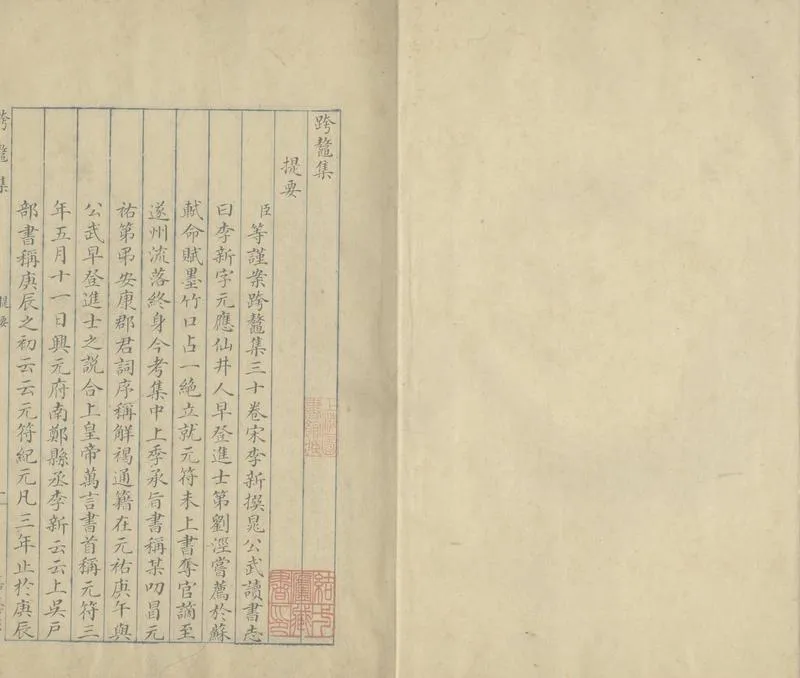 跨鼇集
提要
臣等謹案跨鼇集三十卷宋李新撰晁公武讀書志
曰李新字元應仙井人早登進士第劉涇嘗薦於蘇
軾命賦墨竹口占一絶立就元符末上書奪官謫至
遂州流落終身今考集中上季承旨書稱某叨冒元
祐第弔安康郡君詞序稱解褐通籍在元祐庚午與
公武早登進士之説合上皇帝萬言書首稱元符三
年五月十一日興元府南鄭縣丞李新云云上吳戸
部書稱庚辰之初云云元符紀元凡三年止於庚辰
跨鼇集
提要